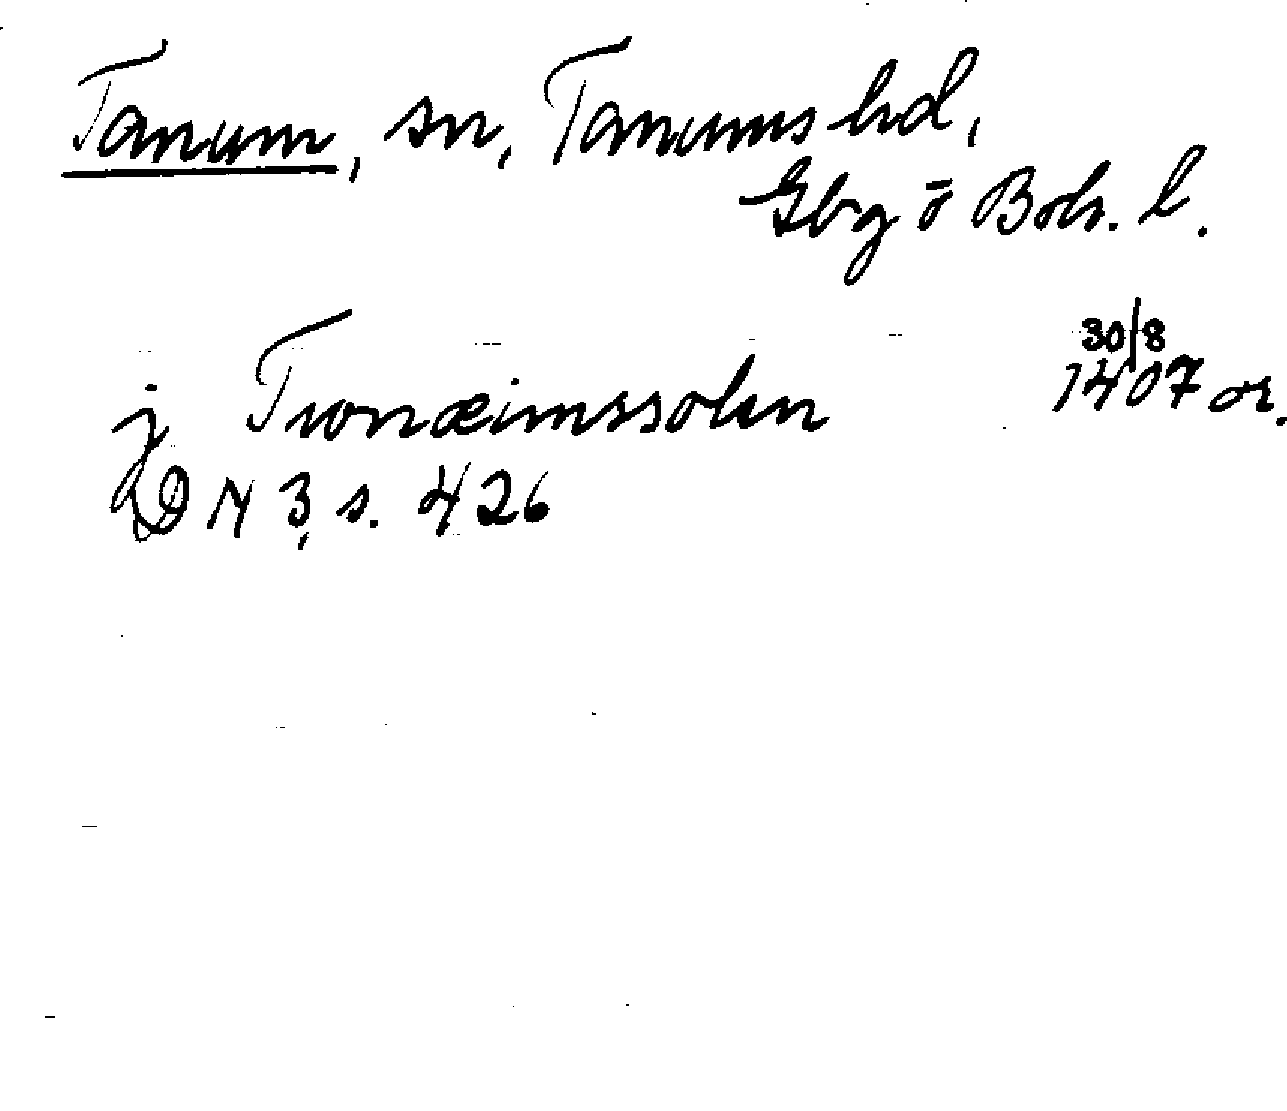 Tanum, sn, Tanums hd,
Gbg o Boh. l.
j Tronæimssokn 30/8 1407 or.
DN 3, s. 426